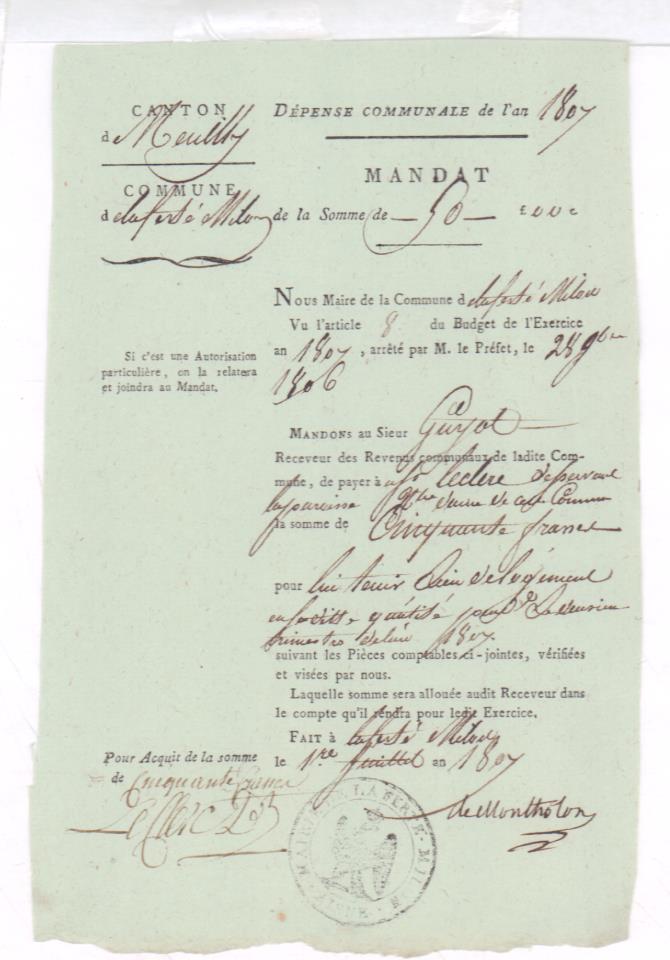 CANTON
d Neuilly
COMMUNE
d laferté Milon
DÉPENSE COMMUNALE de l'an 1807
MANDAT
de la Somme de — 50 —
Si c'est une Autorisation
particulière, on la relatera
et joindra au Mandat.
Nous Maire de la Commune d laferté Milon
Vu l'article 8 du Budget de l'Exercice
an 1807, arrêté par M. le Préfet, le 28 9bre
1806
Mandons au Sieur Guyot
Receveur des Revenus communaux de ladite Com-
mune, de payer à Leclerc desservant
la paroisse de cette Commune
la somme de Cinquante francs
pour lui tenir lieu de logement
en sa ditte qualité pour le
trimestre de l'an 1807
suivant les Pièces comptables ci-jointes, vérifiées
et visées par nous.
Laquelle somme sera allouée audit Receveur dans
le compte qu'il rendra pour ledit Exercice.
Fait à laferté Milon
le 1re Juillet an 1807
Pour Acquit de la somme
de Cinquante francs
Leclerc
de Montholon
MAIRIE DE LA FERTE-MILON
AISNE